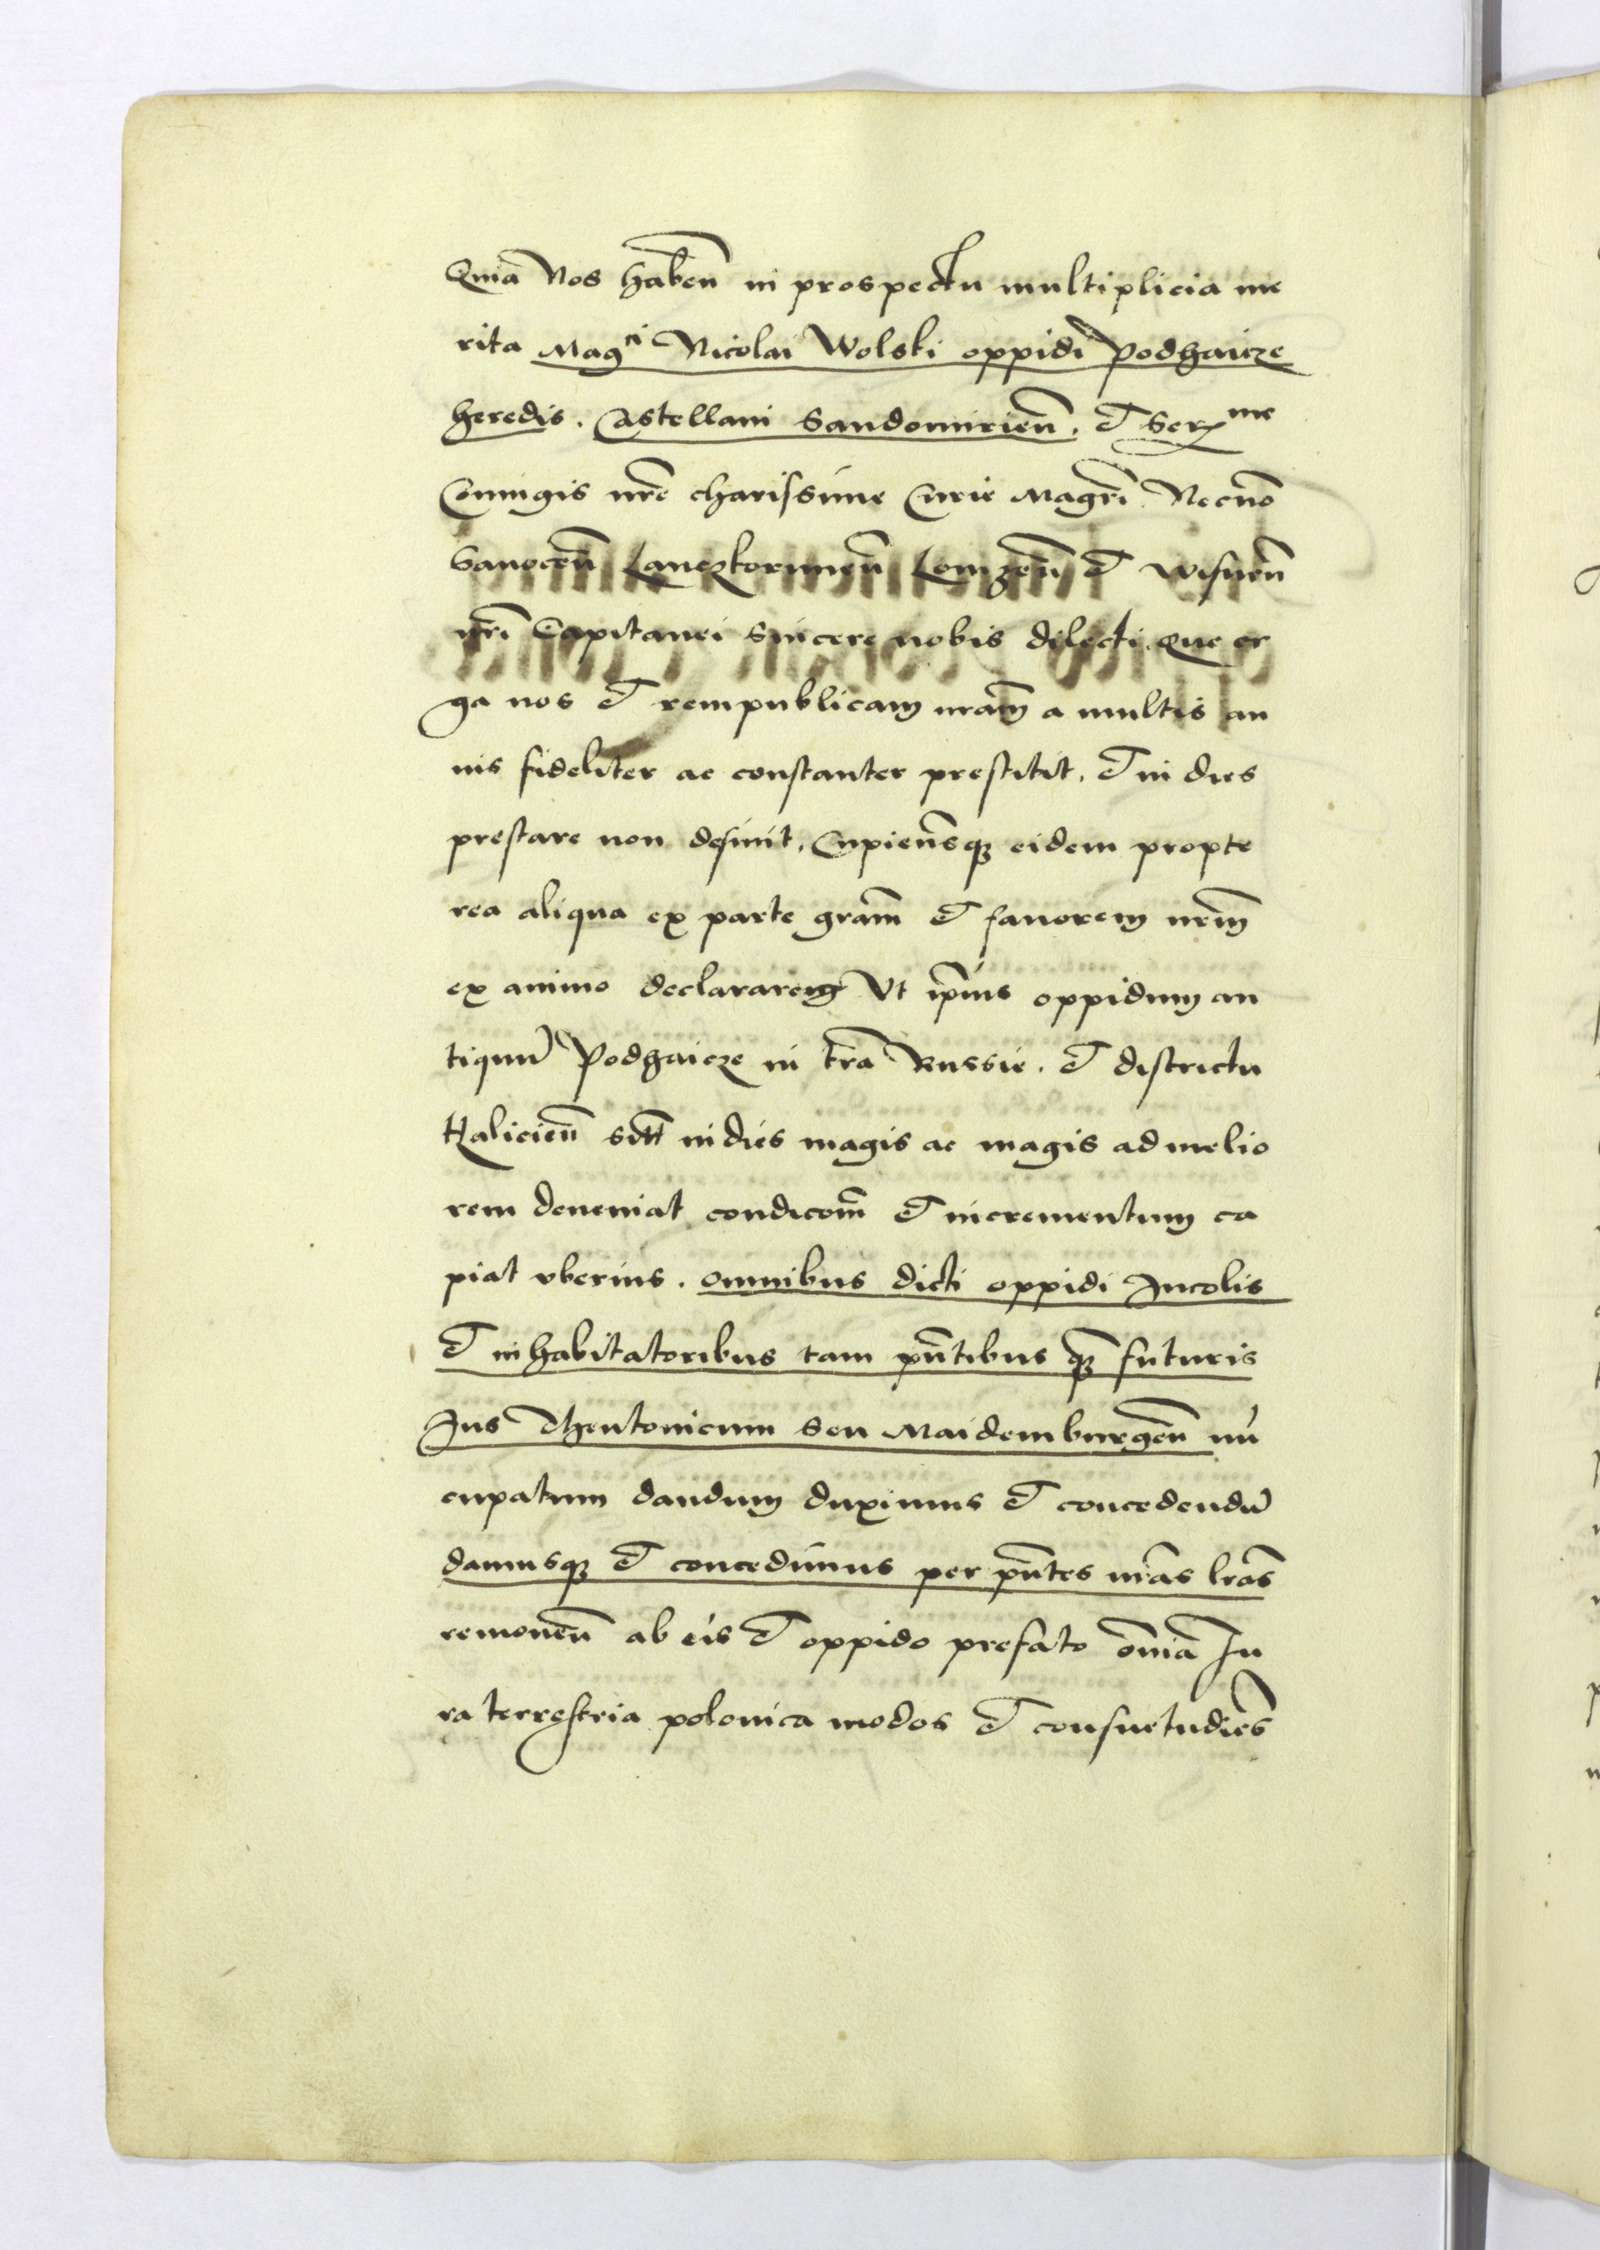 Quia Nos haben̄ in prospectu multiplicia me
rita Magci Nicolai Wolski oppidi Podhaicze
heredis. Castellani Sandomirien̄. et Serme
Coniugis nr̄e charissime Curie Magr̄i Necnō
Sanocen̄ Lanczkorunen̄ Lomzen̄ et Wisnen̄
nr̄i Capitanei Sincere nobis dilecti que er
ga nos et rempublicam nrām a multis an
nis fideliter ac constanter prestitit. et in dies
prestare non desinit, Cupien̄sq3 eidem propte
rea aliqua ex parte grām et fauorem nrm̄
ex animo declararem Vt ip̄ius oppidum an
tiquū Podhaicze in trā Russie. et districtu
Halicien̄ sitt̄ in dies magis ac magis ad melio
rem deueniat condicōm et incrementum ca
piat vberius. omnibus dicti oppidi Incolis
et inhabitatoribus tam pn̄tibus q3̄ futuris
Ius Theutonicum seu Maidemburgen̄ nū
cupatum dandum duximus et concedendū
damusq3 et concedimus per pn̄tes nr̄as lrās
remouen̄ ab eis et oppido prefato om̄ia Iu
ra terrestria polonica modos et consuetudiēs